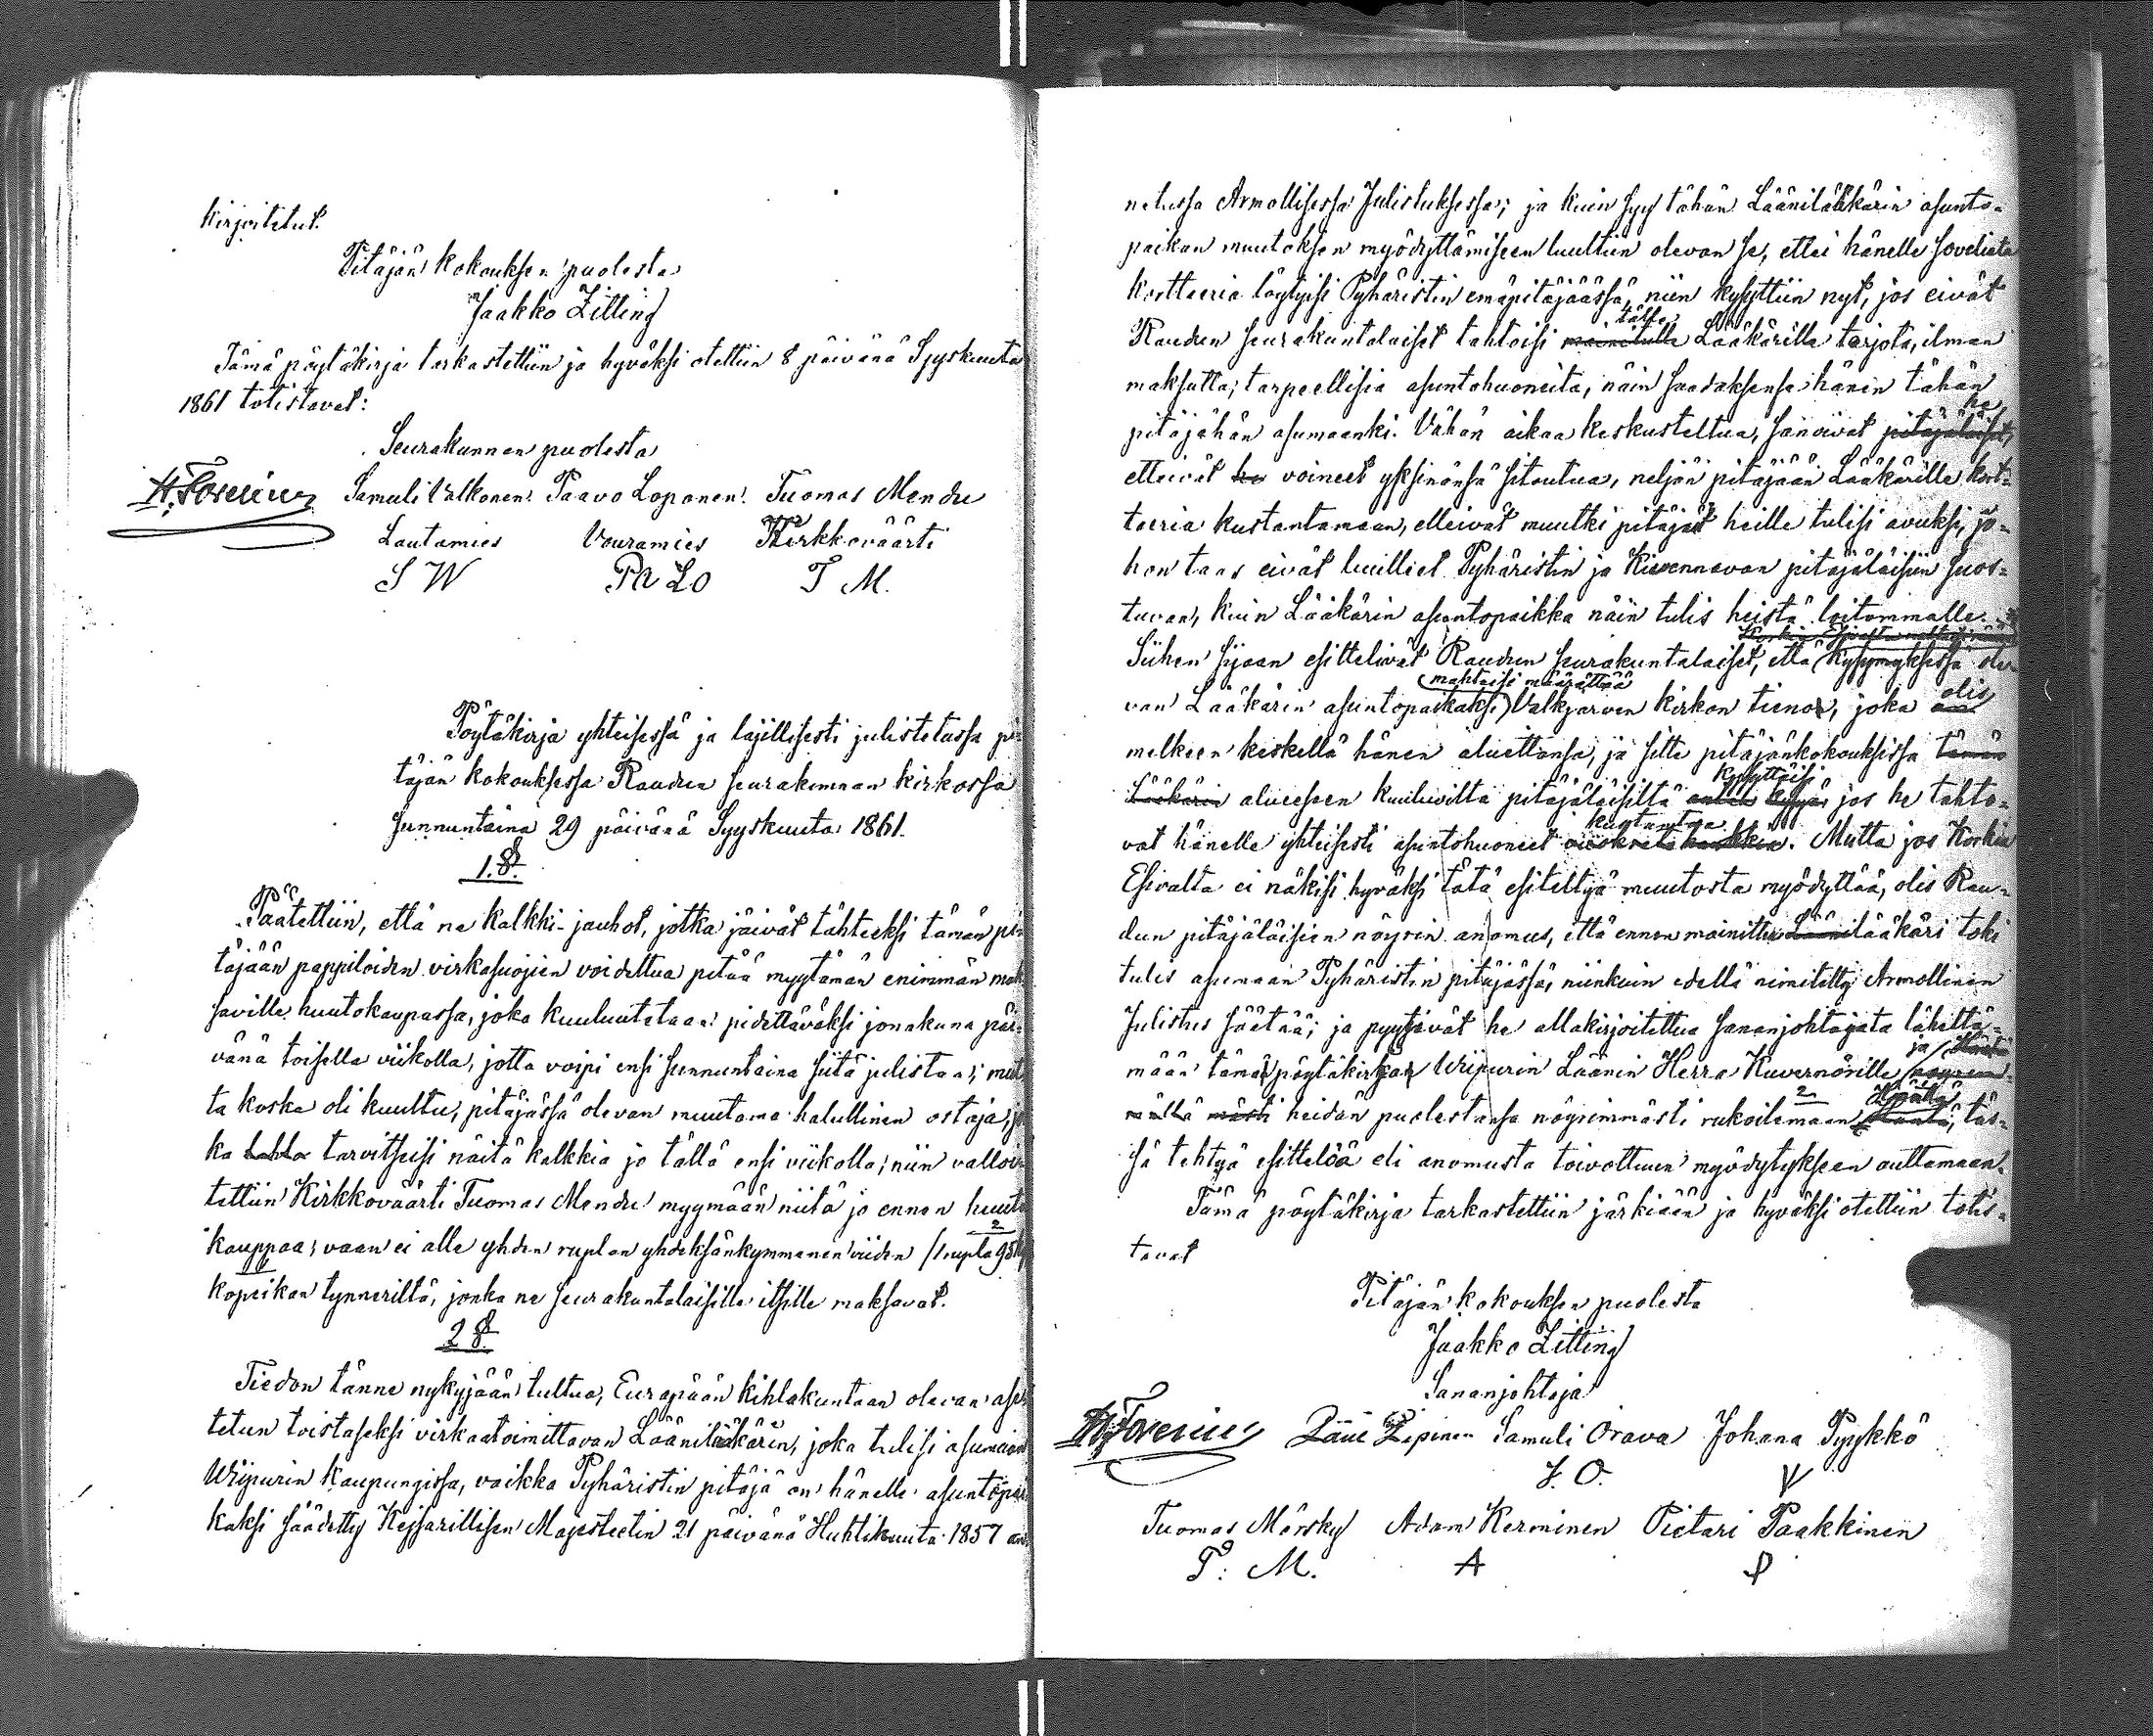 kirjoitetut.
Pitäjän kokouksen puolesta
Jaakko Zitting
Tämä pöytäkirja tarkastettiin ja hyväksi otettiin 8 päivänä Syyskuuta
1861 totistavat:
Seurakunnan puolesta
Samuli Valkonen. Paavo Loponen. Tuomas Mendu
Lautamies Vouramies Kirkkoväärti
S W Pa Lo T M.
Pöytäkirja yhteisessä ja lajillisesti julistetussa pi-
täjän kokouksessa Raudun seurakunnan kirkossa
Sunnuntaina 29 päivänä Syyskuuta 1861.
1 §.
Päätettiin, että ne kalkki-jauhot, jotka jäivät tähteeksi tämän pi-
täjään pappiloiden virkasuojien voideltua pitää myytämän enimmän mak-
saville huutokaupassa, joka kuulutetaan pidettäväksi jonakuna päi-
vänä toisella viikolla, jotta voipi ensi sunnuntaina siitä julistaa; mut-
ta koska oli kuultu, pitäjässä olevan muutama halullinen ostaja, jo-
ka tarvitseisi näitä kalkkia jo tällä ensi viikolla; niin valloi-
tettiin Kirkkoväärti Tuomas Mendu myymään niitä jo ennen huuto
kauppaa; vaan ei alle yhden ruplan yhdeksänkymmenen viiden /1 rupla 95 k/
kopeikan tynneriltä, jonka ne seurakuntalaisille itsille maksavat.
2 §.
Tiedon tänne nykyjään tultua, Eurapään kihlakuntaan olevan ase-
tetun toistaseksi virkaatoimittavan Läänilääkärin, joka tulisi asumaan
Wiipurin kaupungissa, vaikka Pyhäristin pitäjä on hänelle asuntopai-
kaksi säädetty Keisarillisen Majesteetin 21 päivänä Huhtikuuta 1857 an-
netussa Armollisessa Julistuksessa; ja kuin syy tähän Läänilääkärin asunto-
paikan muutoksen myödyttämiseen luultiin olevan se, ettei hänelle soveliata
kortteeria löytyisi Pyhäristin emäpitäjäässä, niin kysyttiin nyt, jos eivät
tälle
Raudun seurakuntalaiset tahtoisi mainitulle Lääkärille tarjota, ilman
maksutta, tarpeellisia asuntohuoneita, näin saadaksensa hänen tähän
he
pitäjähän asumaanki. Vähän aikaa keskusteltua, sanoivat pitäjäläiset,
etteivät he voineet yksinänsä sitoutua, neljän pitäjään Lääkärille kort-
teeria kustantamaan, elleivät muutki pitäjät heille tulisi avuksi, jo-
hon taas eivät luulleet Pyhäristin ja Kivennavan pitäjäläisiin suos-
tuvan, kuin Lääkärin asuntopaikka näin tulis heistä loitommalle.
Siihen sijaan esittelivät Raudun seurakuntalaiset, että kysymyksessä ole-
mahtaisi määrättää
van Lääkärin asuntopaikaksi Valkjärven kirkon tienoo, joka on
olis
melkeen keskellä hänen aluettansa, ja sitte pitäjänkokouksissa tämän
kysyttäisi
Lääkärin alueeseen kuuluvilta pitäjäläisiltä jos he tahto-
kustantaa
vat hänelle yhteisesti asuntohuoneet. Mutta jos Korkia
Esivalta ei näkisi hyväksi tätä esiteltyä muutosta myödyttää, olis Rau-
dun pitäjäläisien nöyrin anomus, että ennen mainittu Läänilääkäri toki
tulis asumaan Pyhäristin pitäjässä, niinkuin edellä nimitetty Armollinen
Julistus säätää; ja pyytävät he allakirjoitettua sananjohtajata lähettä-
ja
mään tämän pöytäkirjan Wiipurin Läänin Herra Kuvernörille
heidän puolestansa nöyrimmästi rukoilemaan, täs-
sä tehtyä esittelöä eli anomusta toivottuun myödytykseen auttamaan.
Tämä pöytäkirja tarkastettiin järkiään ja hyväksi otettiin totis-
tavat
Pitäjän kokouksen puolesta
Jaakko Zitting
Sananjohtaja
Samuli Orava Johana Pyykkö
S. O.
Tuomas Mörsky Adam Kerminen Pietari Paakkinen
T. M. A P